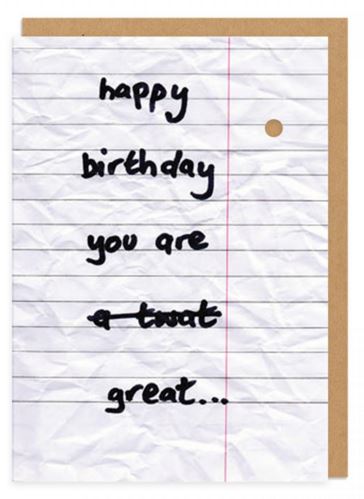 happy
birthday
you are
a twat
great...